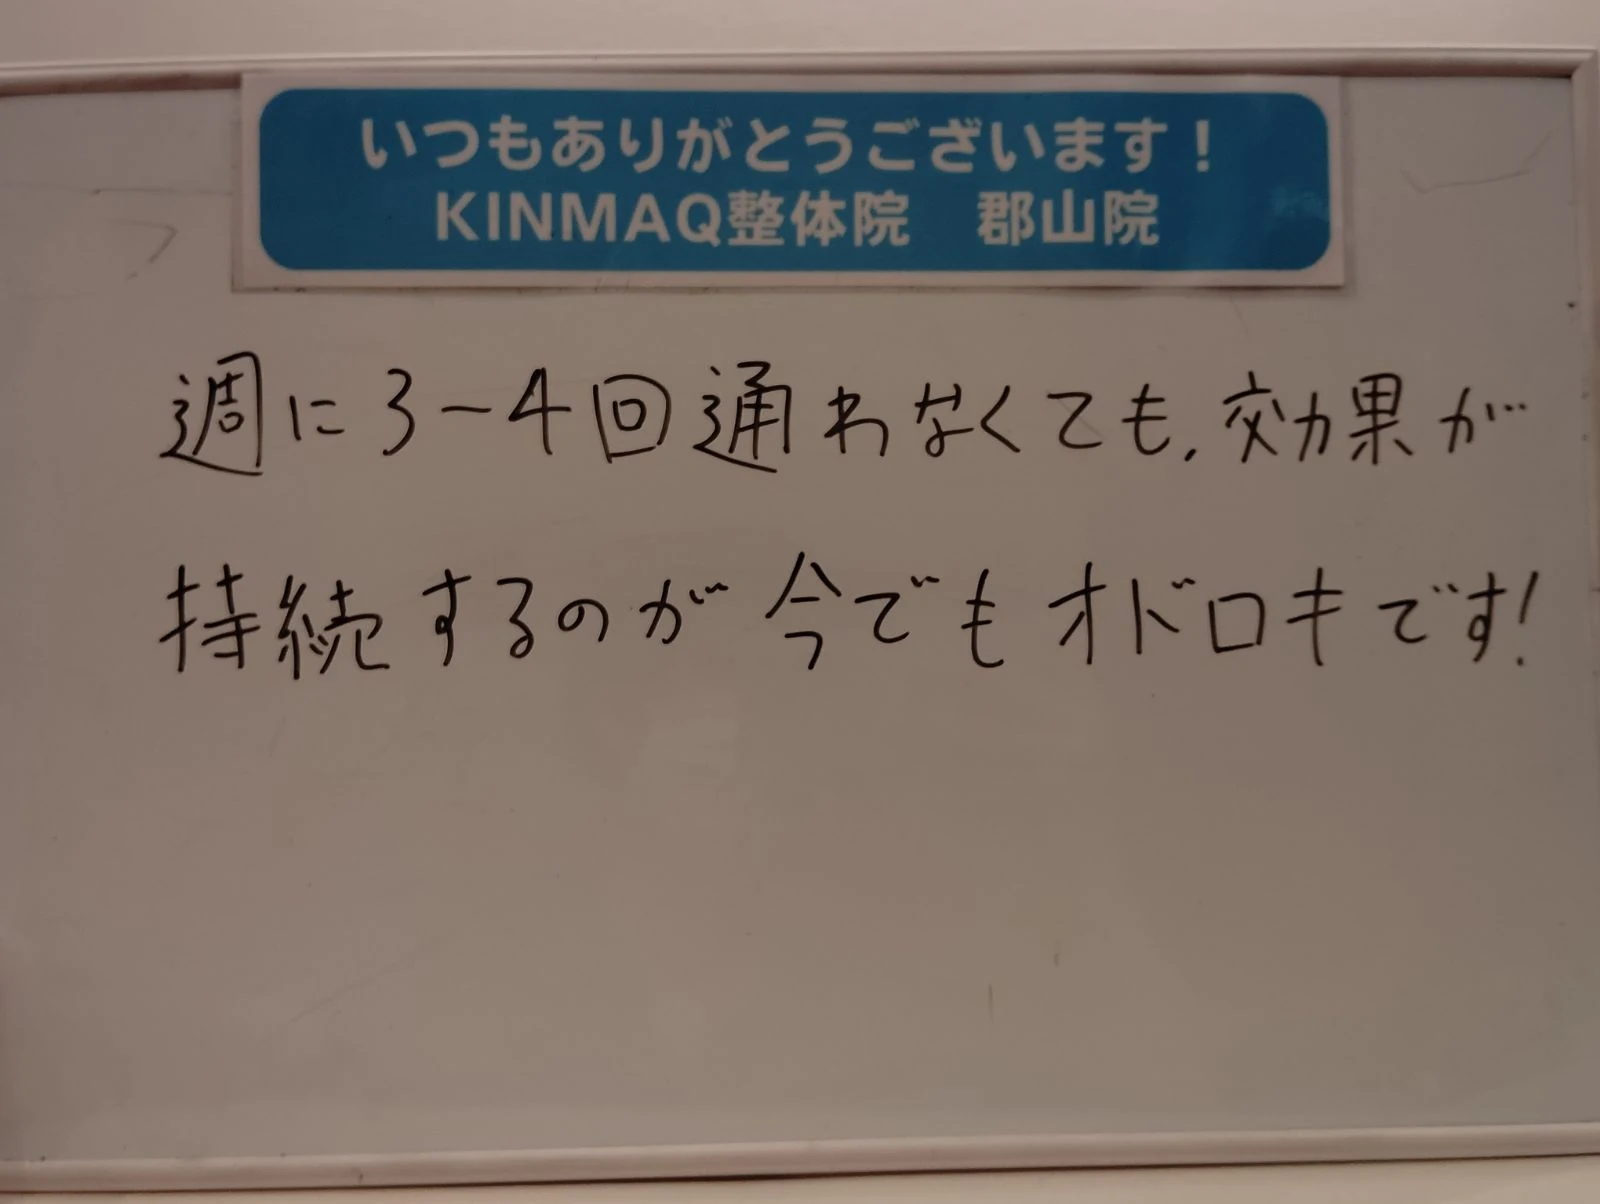 いつもありがとうございます！
KINMAQ整体院　郡山院
週に3-4回通わなくても、効果が
持続するのが今でもオドロキです!